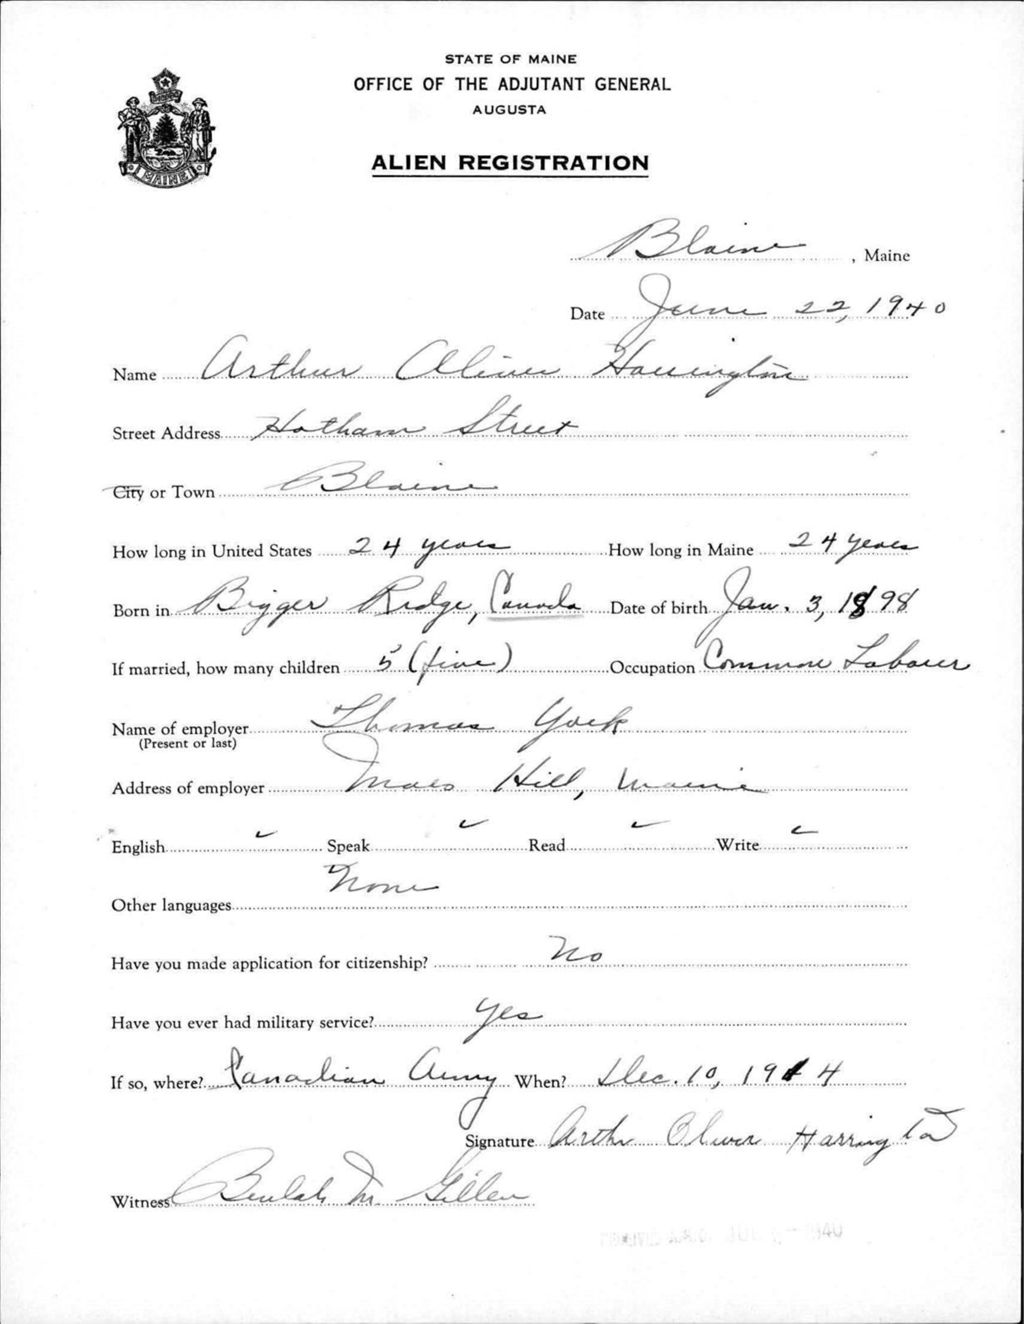 STATE OF MAINE
OFFICE OF THE ADJUTANT GENERAL
AUGUSTA
ALIEN REGISTRATION
MAINE
Blaine, Maine
Date June 22, 1940
Name Arthur Oliver Harrington
Street Address Hotham Street
City or Town Blaine
How long in United States 24 years How long in Maine 24 years
Born in Bigger Ridge, Canada Date of birth Jan. 3, 1898
If married, how many children 5 (five) Occupation Common Laborer
Name of employer Thomas York
(Present or last)
Address of employer Mars Hill, Maine
English ✓ Speak ✓ Read ✓ Write ✓
Other languages None
Have you made application for citizenship? No
Have you ever had military service? Yes
If so, where? Canadian Army When? Dec. 10, 1914
Signature Arthur Oliver Harrington
Witness Beulah M. Gillen